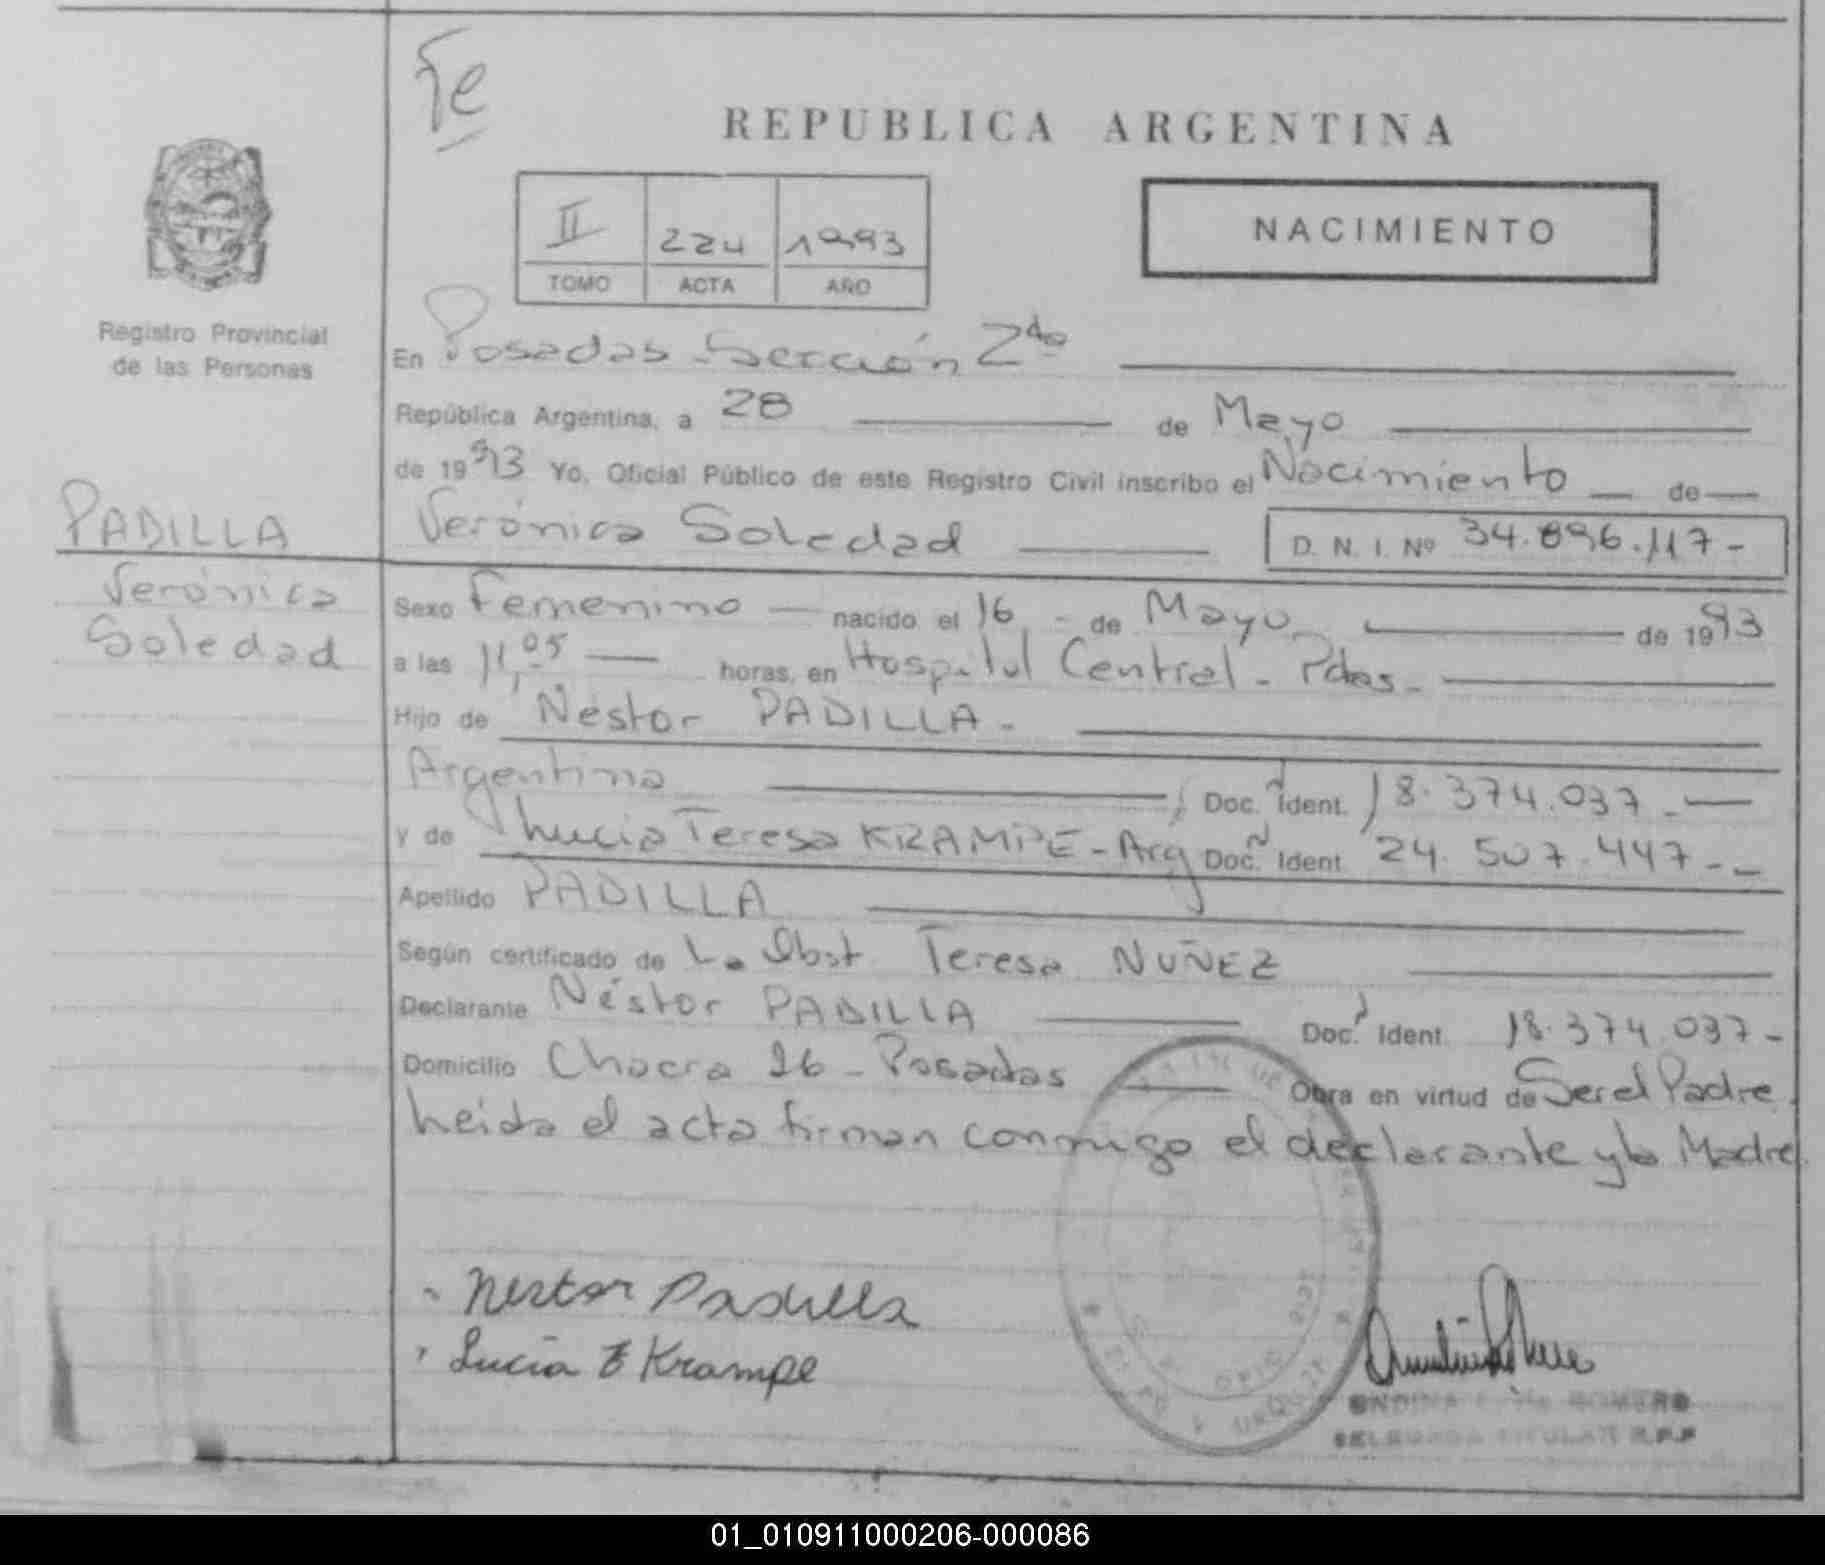 Fe
REPUBLICA ARGENTINA
II 224 1993
TOMO ACTA AÑO
NACIMIENTO
Registro Provincial
de las Personas
En Posadas Sección 2da
República Argentina, a 28 de Mayo
de 1993 Yo, Oficial Público de este Registro Civil inscribo el Nacimiento de
PADILLA
Verónica Soledad D. N. I. Nº 34.896.117-
Verónica
Soledad
Sexo Femenino nacido el 16 - de Mayo de 1993
a las 11,05 horas, en Hospital Central - Pdas -
Hijo de Néstor PADILLA -
Argentino Doc. Ident. 18.374.037 -
y de Lucia Teresa KRAMPE - Arg Doc. Ident. 24.507.447 - -
Apellido PADILLA
Según certificado de La Obst. Teresa NUÑEZ
Declarante Néstor PADILLA Doc. Ident. 18.374.037 -
Domicilio Chacra 26 - Posadas Obra en virtud de Ser el Padre.
Leida el acta firman conmigo el declarante y la Madre.
Nestor Padilla
Lucia T Krampe
ROMERO
TITULAR R.P.P
01_010911000206-000086